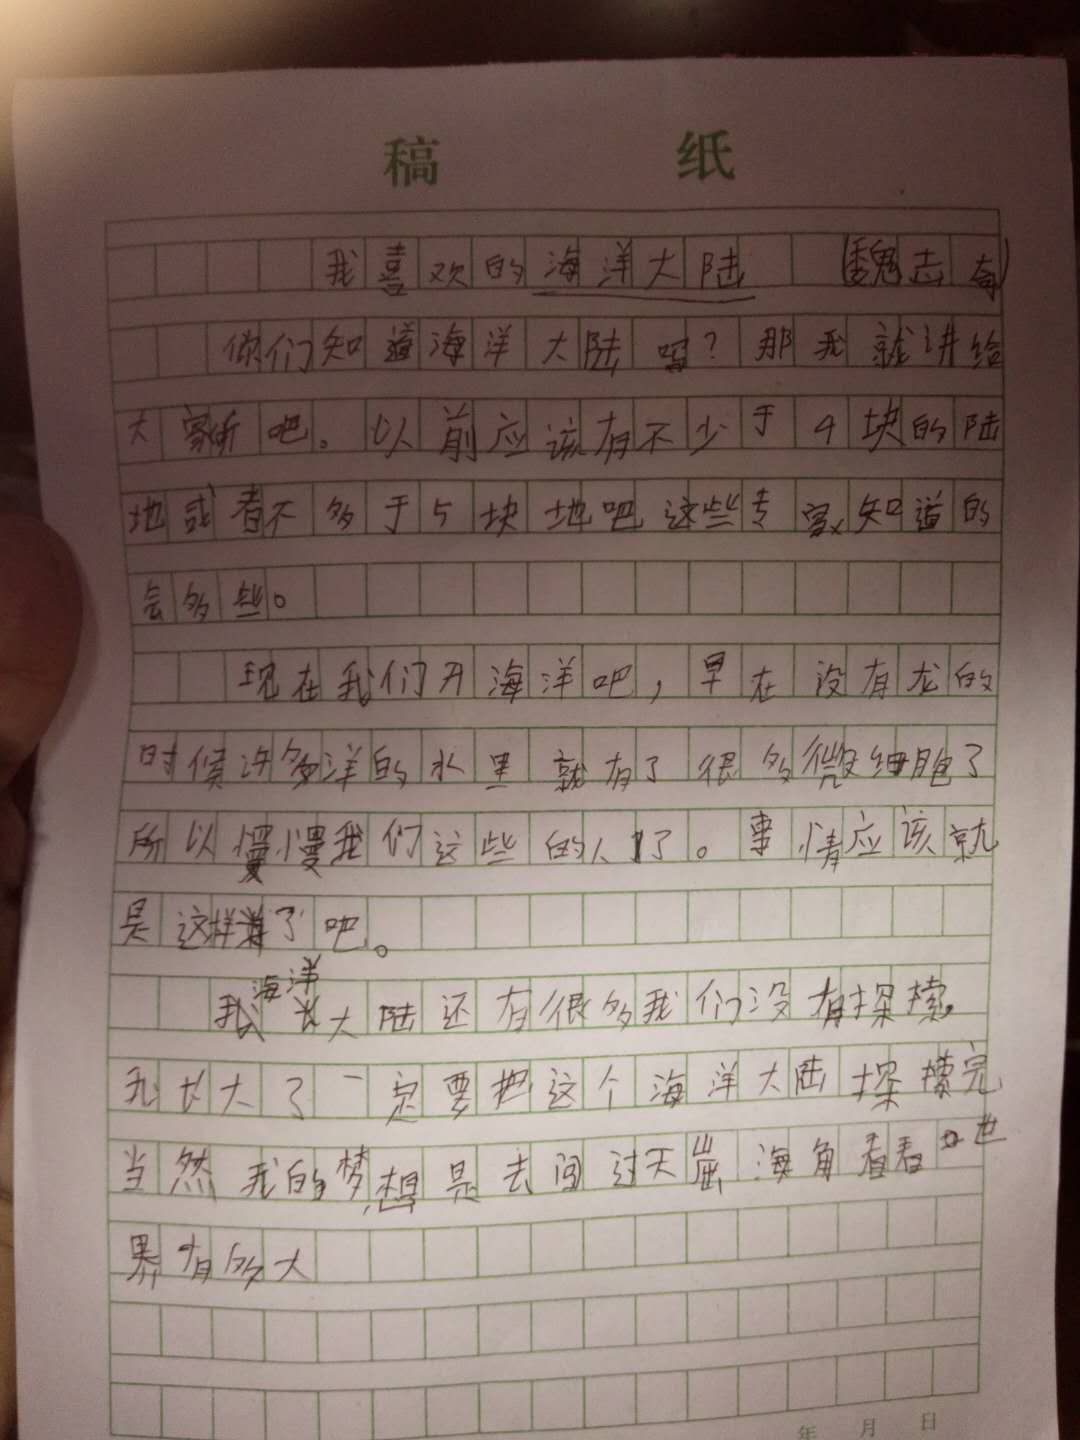 稿 纸
我喜欢的海洋大陆 (魏志奇)
你们知道海洋大陆吗?那我就讲给
大家听吧。以前应该有不少于4块的陆
地或者不多于5块地吧这些专家知道的
会多些。
现在我们开海洋吧,早在没有龙的
时候许多洋的水里就有了很多微细胞了
所以慢慢我们这些的人了。事情应该就
是这样了吧。
海洋
我大陆还有很多我们没有探索。
我长大了一定要把这个海洋大陆探索完
当然我的梦想是去闯过天崖海角看看世
界有多大
年 月 日